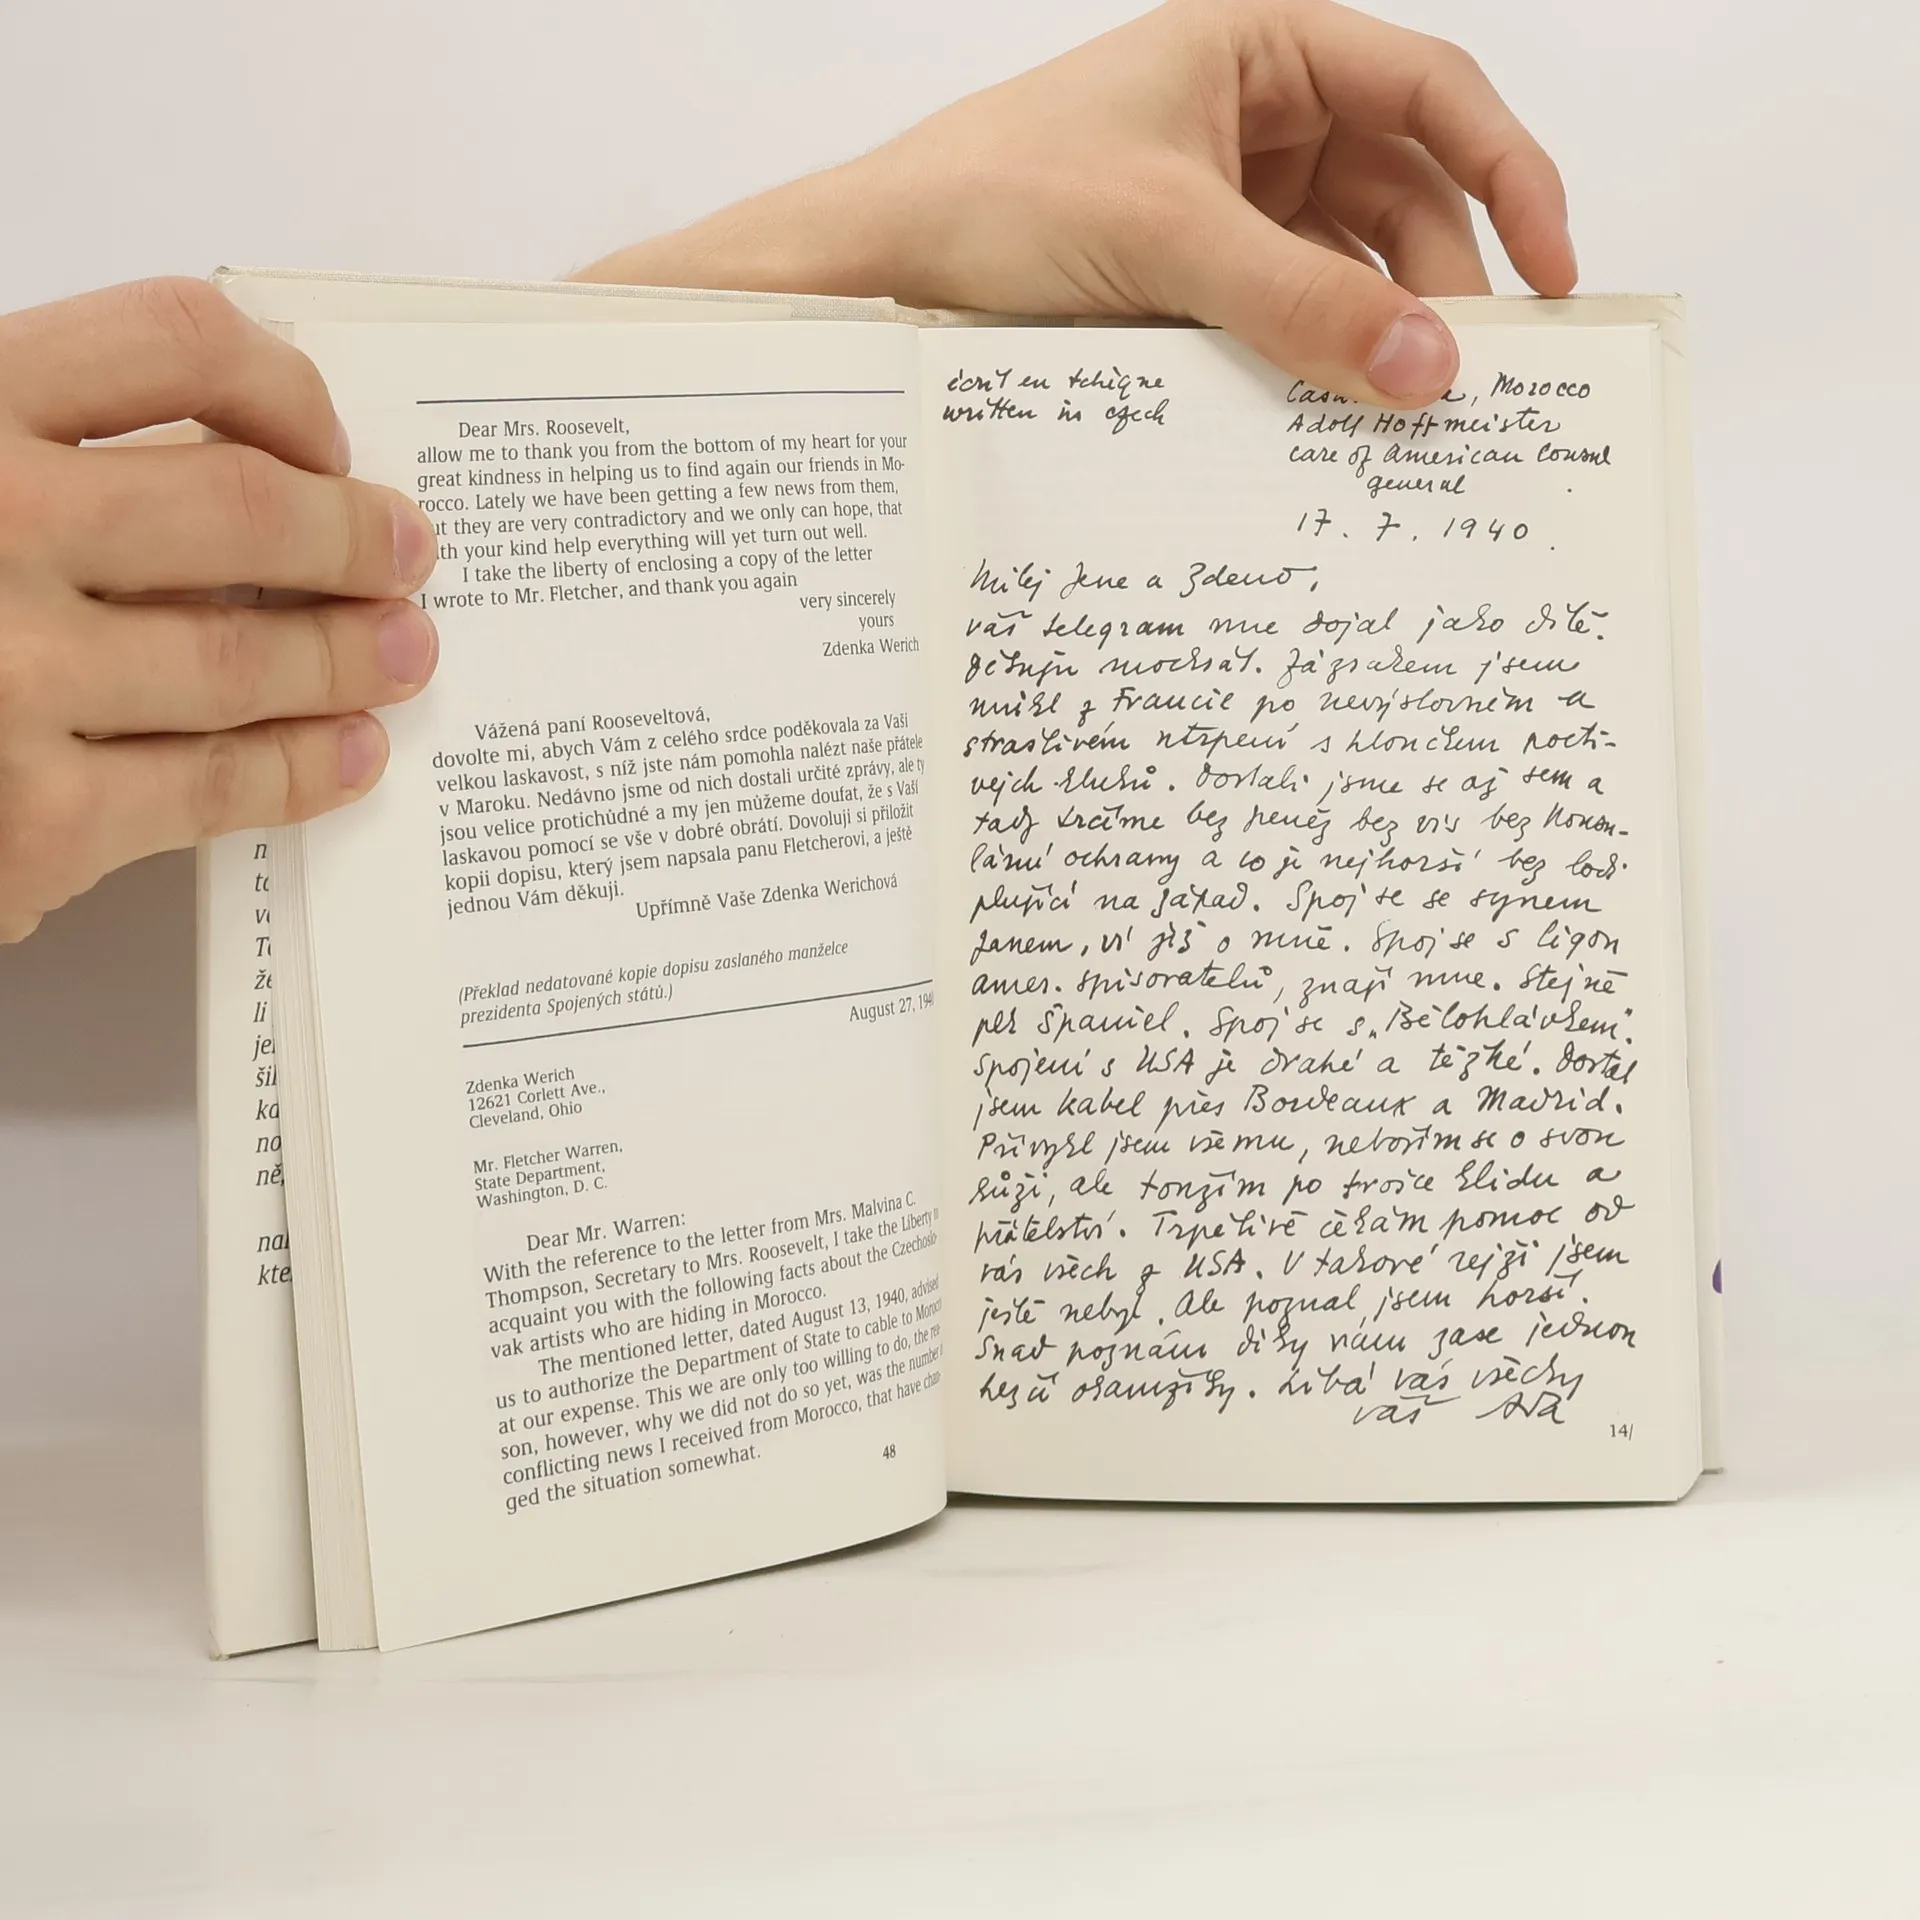 Dear Mrs. Roosevelt,
allow me to thank you from the bottom of my heart for your
great kindness in helping us to find again our friends in Mo-
rocco. Lately we have been getting a few news from them,
ut they are very contradictory and we only can hope, that
th your kind help everything will yet turn out well.
I take the liberty of enclosing a copy of the letter
I wrote to Mr. Fletcher, and thank you again
very sincerely
yours
Zdenka Werich
Vážená paní Rooseveltová,
dovolte mi, abych Vám z celého srdce poděkovala za Vaši
velkou laskavost, s níž jste nám pomohla nalézt naše přátele
v Maroku. Nedávno jsme od nich dostali určité zprávy, ale ty
jsou velice protichůdné a my jen můžeme doufat, že s Vaší
laskavou pomocí se vše v dobré obrátí. Dovoluji si přiložit
kopii dopisu, který jsem napsala panu Fletcherovi, a ještě
jednou Vám děkuji.
Upřímně Vaše Zdenka Werichová
(Překlad nedatované kopie dopisu zaslaného manželce
prezidenta Spojených států.)
August 27, 194
Zdenka Werich
12621 Corlett Ave.,
Cleveland, Ohio
Mr. Fletcher Warren,
State Department,
Washington, D. C.
Dear Mr. Warren:
With the reference to the letter from Mrs. Malvina C.
Thompson, Secretary to Mrs. Roosevelt, I take the Liberty
acquaint you with the following facts about the Czechoslo-
vak artists who are hiding in Morocco.
The mentioned letter, dated August 13, 1940, advised
us to authorize the Department of State to cable to Moroc
at our expense. This we are only too willing to do, the rea
son, however, why we did not do so yet, was the number
conflicting news I received from Morocco, that have chan-
ged the situation somewhat.
48
n
to
v
T
že
li
je
šil
ka
no
ně,
nal
kte
écrit en tchèque
written in czech
Casa a, Morocco
Adolf Hoffmeister
care of American Consul
general
17. 7. 1940.
Milej Jene a Zdeno,
váš telegram mne dojal jako dítě.
Děkuju mockrát. Zázrakem jsem
unikl z Francie po nevýslovném a
strašlivém utrpení s hloučkem pocti-
vejch kluků. Dostali jsme se až sem a
tady trčíme bez peněz bez vis bez Konsu-
lární ochrany a co je nejhorší bez lodi
plující na západ. Spoj se se synem
Janem, ví již o mně. Spoj se s ligou
amer. spisovatelů, znají mne. Stejně
pek Španiel. Spoj se s „Bělohlávkem".
Spojení s USA je drahé a těžké. Dostal
jsem kabel přes Bordeaux a Madrid.
Přivykl jsem všemu, nebojím se o svou
kůži, ale toužím po trošce klidu a
přátelství. Trpělivě čekám pomoc od
vás všech z USA. V takové rejži jsem
ještě nebyl. Ale poznal jsem horší.
Snad poznám díky vám zase jednou
hezčí okamžiky. Líbá vás všechy
váš Ada
14/